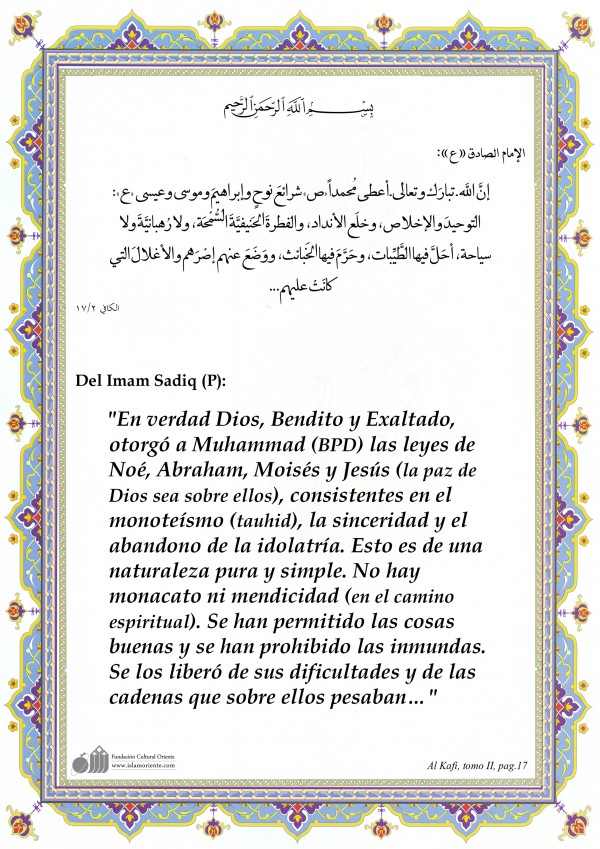 بِسْمِ ٱللَّهِ ٱلرَّحْمَنِ ٱلرَّحِيمِ
الإمام الصادق «ع»:
إنَّ اللّٰه ـ تبارَك وتعالى ـ أعطى مُحمداً «ص» شرائعَ نوحٍ وإبراهيمَ وموسى وعيسى «ع»:
التوحيدَ والإخلاص، وخلَع الأنداد، والفطرةَ الحَنيفيَّةَ السُّمْحَة، ولا رُهبانيَّةَ ولا
سياحة، أحَلَّ فيها الطَّيِّبات، وحَرَّمَ فيها الخَبائث، ووَضَعَ عنهم إصْرَهم والأغلالَ التي
كانَتْ عليهم...
الكافي ١٧/٢
Del Imam Sadiq (P):
"En verdad Dios, Bendito y Exaltado,
otorgó a Muhammad (BPD) las leyes de
Noé, Abraham, Moisés y Jesús (la paz de
Dios sea sobre ellos), consistentes en el
monoteísmo (tauhid), la sinceridad y el
abandono de la idolatría. Esto es de una
naturaleza pura y simple. No hay
monacato ni mendicidad (en el camino
espiritual). Se han permitido las cosas
buenas y se han prohibido las inmundas.
Se los liberó de sus dificultades y de las
cadenas que sobre ellos pesaban..."
Fundación Cultural Oriente
www.islamoriente.com
Al Kafi, tomo II, pag.17